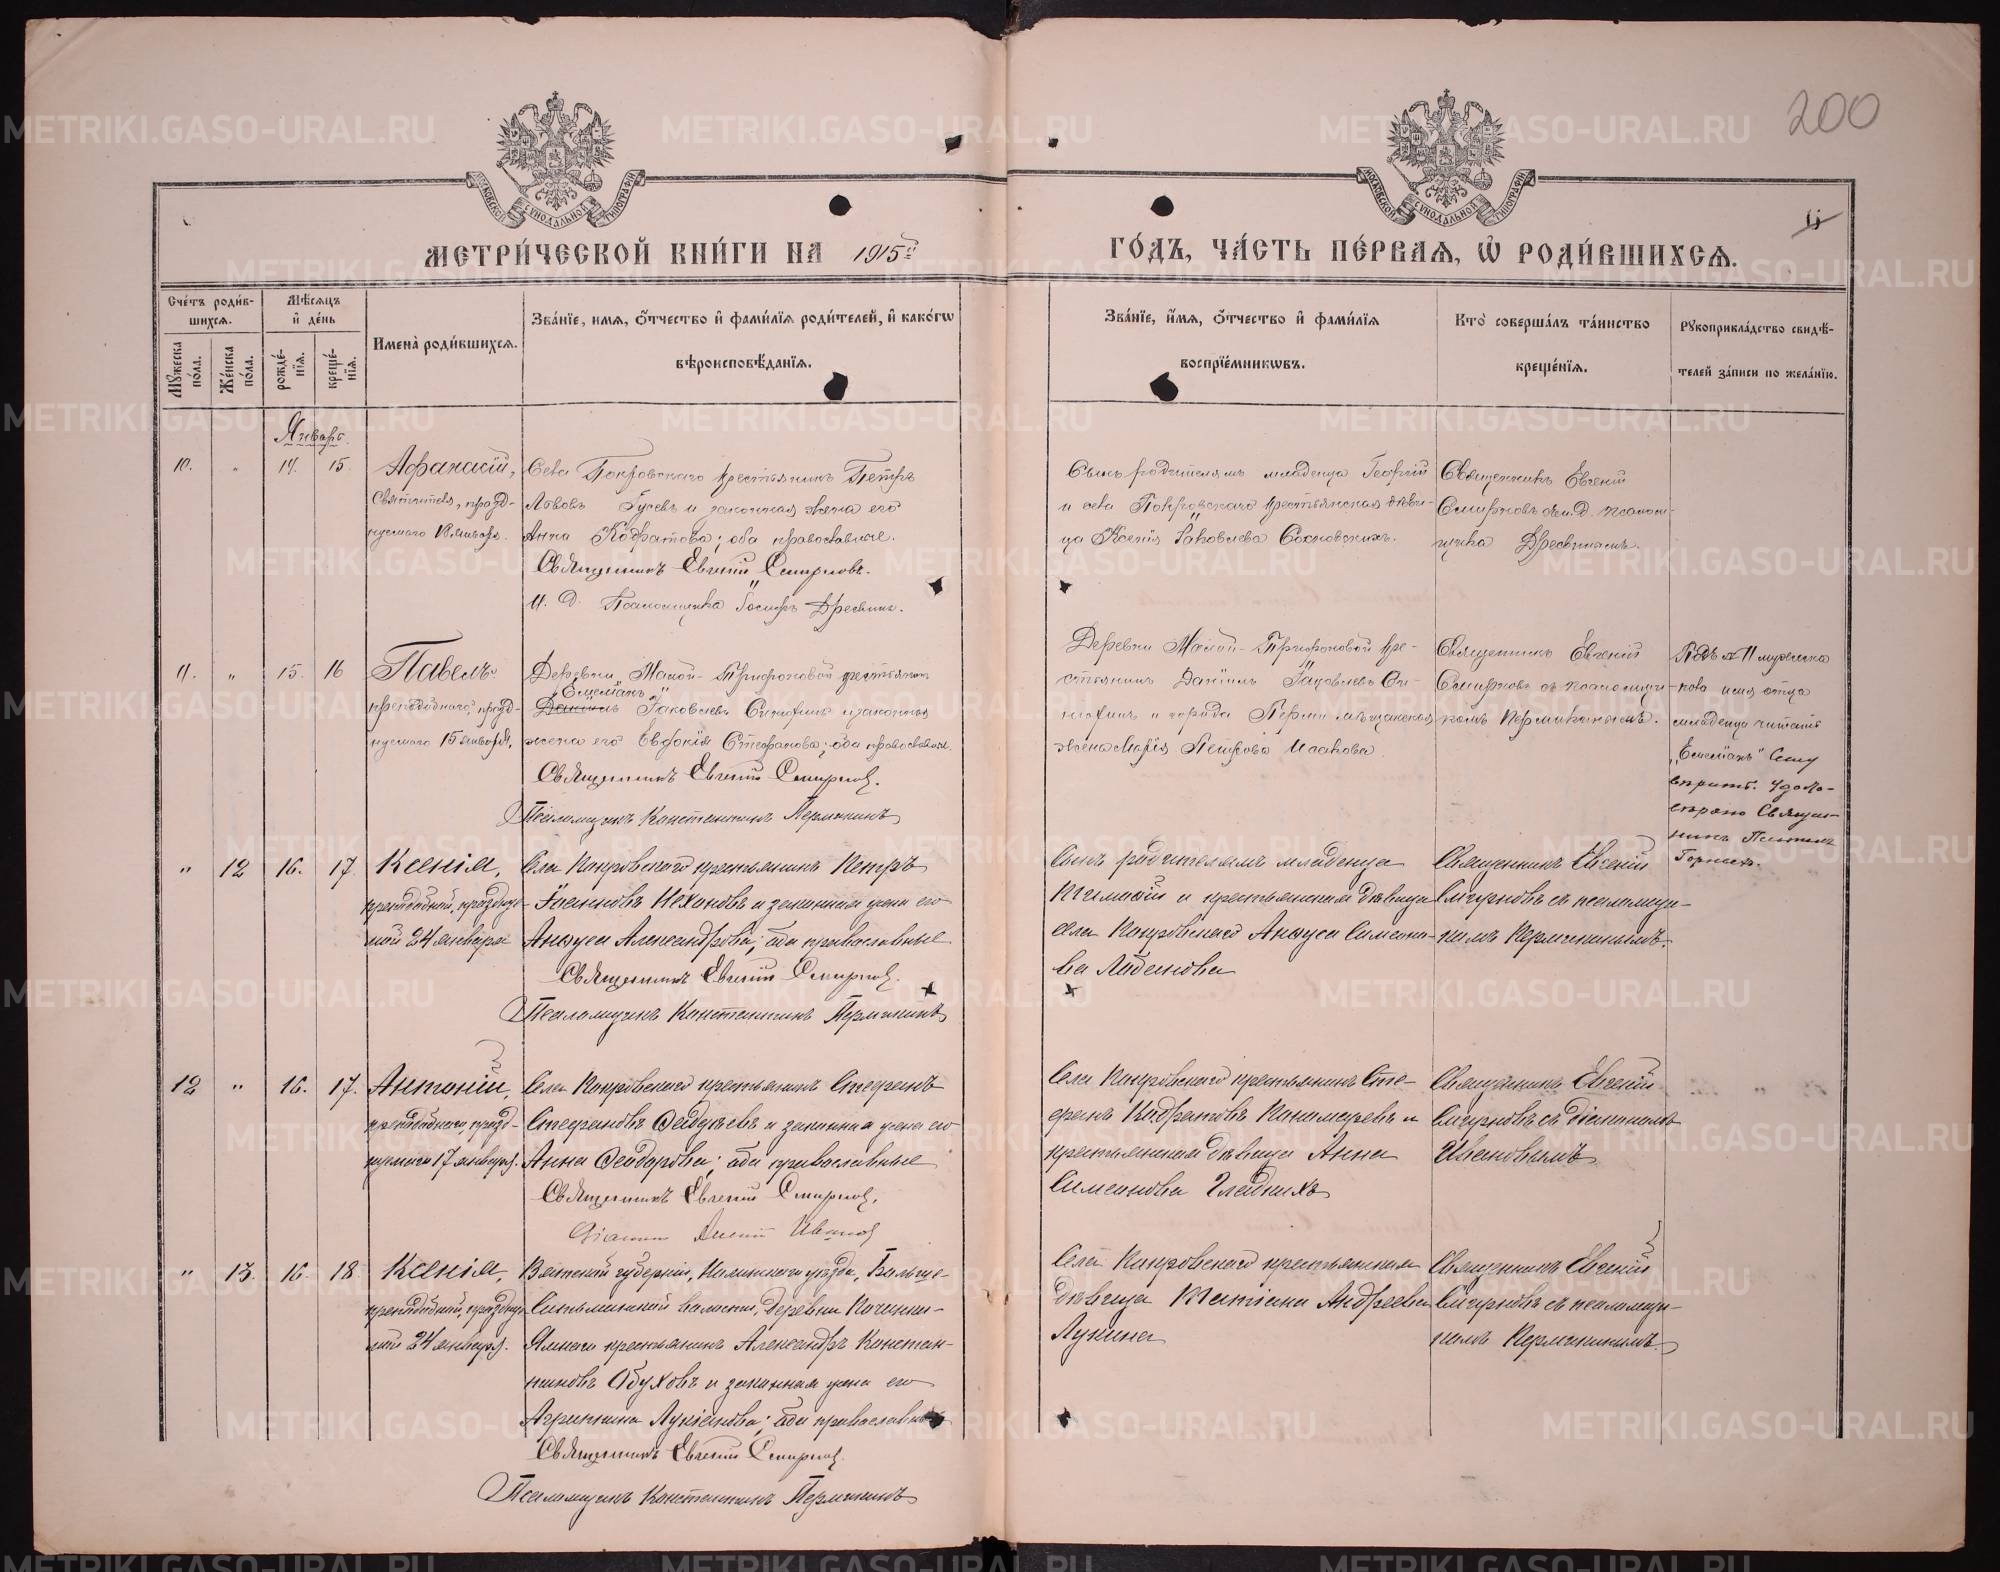 200
МЕТРИ́ЧЕСКОЙ КНИ́ГИ НА 1915й
ГО́ДЪ, ЧА́СТЬ ПЕ́РВАѦ, Ѡ҆ РОДИ́ВШИХСѦ.
Сче́тъ роди́в-
шихсѧ.
Мѣ́сѧцъ
и҆ де́нь
Мꙋ́жеска по́ла.
Же́нска по́ла.
рожде́-
нїѧ.
креще́-
нїѧ.
Имена̀ роди́вшихсѧ.
Зва́нїе, имѧ, ѻ҆́тчество и҆ фами́лїѧ роди́телей, и҆ како́гѡ
вѣроисповѣ́данїѧ.
Зва́нїе, и҆́мѧ, ѻ҆́тчество и҆ фами́лїѧ
воспрїе́мникѡвъ.
Кто̀ соверша́лъ та́инство
креще́нїѧ.
Рꙋкоприкла́дство свидѣ́-
телей за́писи по жела́нїю.
Январь.
10. " 14. 15. Афанасій,
Святителя, празд-
нуемаго 18 января.
Села Покровскаго крестьянинъ Петръ
Львовъ Гусевъ и законная жена его
Анна Кодратова; оба православные.
Священникъ Евгеній Смирновъ.
И. Д. Псаломщика Іосифъ Дресвянк.
Сынъ родителямъ младенца Георгій
и села Покровскаго крестьянская дѣви-
ца Ксенія Іаковлева Сосновскихъ.
Священникъ Евгеній
Смирновъ съ и. д. псалом-
щика
11. " 15. 16 Павелъ
преподобнаго, празд-
нуемаго 15 января.
Деревни Малой-Трифоновой крестьянинъ
"Емеліанъ"
Даніилъ Іаковлевъ и законная
жена его Евдокія Стефанова; оба православные.
Священникъ Евгеній Смирновъ.
Псаломщикъ Константинъ Пермикинъ
Деревни Малой-Трифоновой кре-
стьянинъ Даніилъ Іаковлевъ Си-
и города Перми мѣщанская
жена Марія Петрова Исакова
Священникъ Евгеній
Смирновъ съ псаломщи-
комъ Пермикинымъ.
Подъ № 11 мужеска
пола имя отца
младенца читать
"Емеліанъ" Сему
вѣрить. Удосто-
вѣряю Священ-
никъ
" 12 16. 17 Ксенія,
преподобной, праздну-
мой 24 января
Села Покровскаго крестьянинъ Петръ
Іоанновъ и законная жена его
Анѳуса Александрова; оба православные
Священникъ Евгеній Смирновъ.
Псаломщикъ Константинъ Пермикинъ
Сынъ родителямъ младенца
и крестьянская дѣвица
села Покровскаго Анѳуса Симеоно-
ва
Священникъ Евгеній
Смирновъ съ псаломщи-
комъ Пермикинымъ.
12 " 16. 17. Антоній,
преподобнаго, празд-
нуемаго 17 января.
Села Покровскаго крестьянинъ Стефанъ
Стефановъ и законная жена его
Анна Ѳеодорова; оба православные
Священникъ Евгеній Смирновъ.
Діаконъ Ивановъ
Села Покровскаго крестьянинъ Сте-
фанъ Кодратовъ Пономаревъ и
крестьянская дѣвица Анна
Симеонова Гладкихъ
Священникъ Евгеній
Смирновъ съ діакономъ
Ивановымъ
" 13. 16. 18. Ксенія,
преподобной, праздну-
мой 24 января.
Вятской губерніи, уѣзда, Больше-
волости, деревни Починки-
крестьянинъ Александръ Констан-
тиновъ Обуховъ и законная жена его
Агрипина Лукіанова; оба православные
Священникъ Евгеній Смирновъ.
Псаломщикъ Константинъ Пермикинъ
Села Покровскаго крестьянская
дѣвица Татіана Андреева
Лукина
Священникъ Евгеній
Смирновъ съ псаломщи-
комъ Пермикинымъ.
METRIKI.GASO-URAL.RU